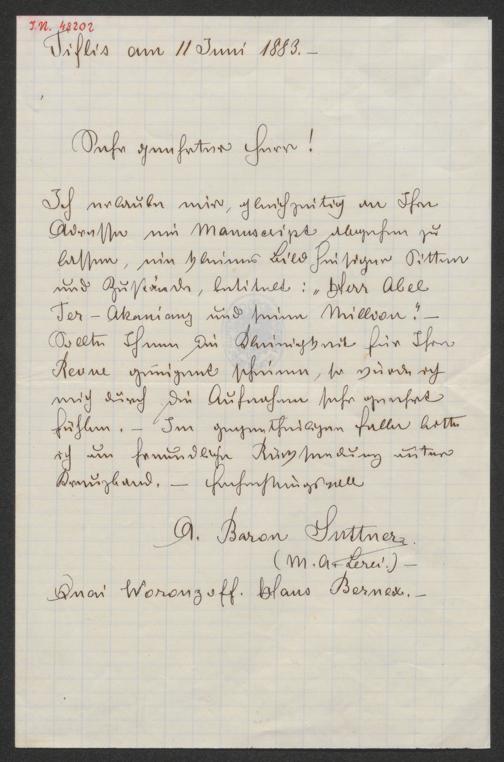 I.N. 48202
Tiflis am 11 Juni 1883.–
Sehr geehrter Herr!
Ich erlaube mir, gleichzeitig an Ihre
Adresse ein Manuscript abgehen zu
lassen, ein kleines Bild hiesiger Sitten
und Zustände, betitelt: „Herr Abel
Ter-Akanianz und seine Million".–
Sollte Ihnen die Kleinigkeit für Ihre
Revue geeignet scheinen, so würde ich
mich durch die Aufnahme sehr geehrt
fühlen. – Im gegentheiligen Falle bitte
ich um freundliche Rücksendung unter
Kreuzband. – Hochachtungsvoll
A. Baron Suttner.
(M. A. Lerei.) –
Quai Woronzoff. Haus Bernex. –